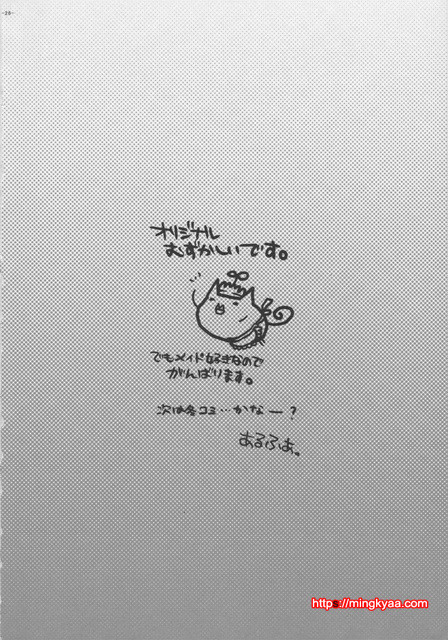 -20-
オリジナル
むずかしいです。
でもメイド好きなので
がんばります。
次は冬コミ…かなー?
あるふぁ。
http://mingkyaa.com